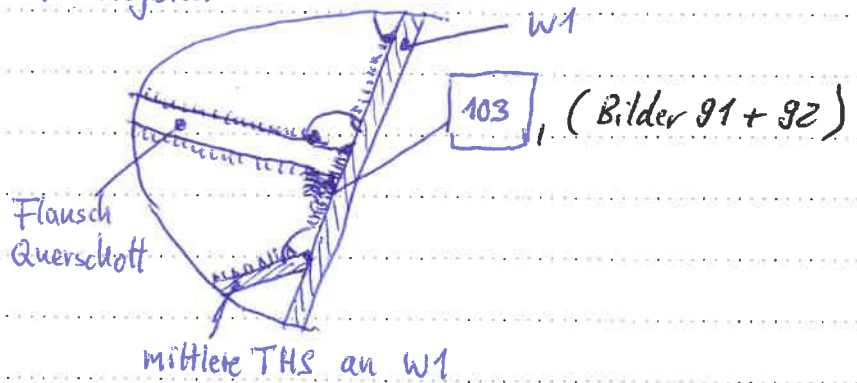 W1
103, (Bilder 91 + 92)
Flausch
Querschott
mittlere THS an W1